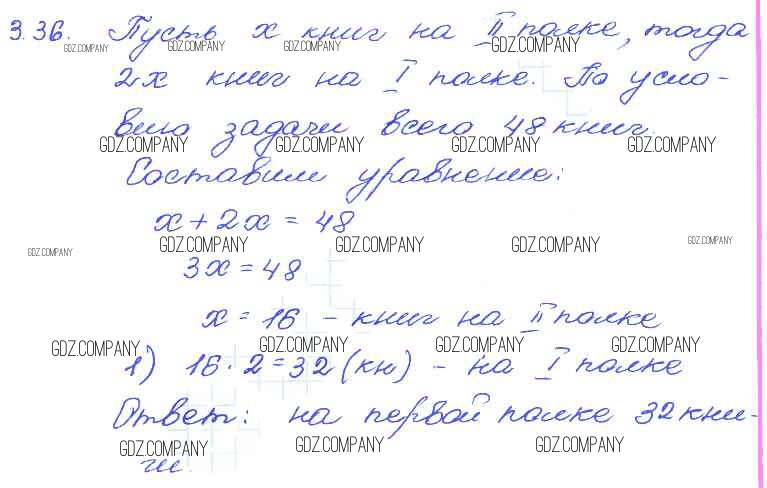 3.36. Пусть x книг на II полке, тогда
2x книг на I полке. По усло-
вию задачи всего 48 книг.
Составим уравнение:
x + 2x = 48
3x = 48
x = 16 – книг на II полке
1) 16 · 2 = 32 (кн) – на I полке
Ответ: на первой полке 32 кни-
ги.
GDZ.COMPANY GDZ.COMPANY GDZ.COMPANY GDZ.COMPANY
GDZ.COMPANY GDZ.COMPANY GDZ.COMPANY GDZ.COMPANY
GDZ.COMPANY GDZ.COMPANY GDZ.COMPANY GDZ.COMPANY GDZ.COMPANY
GDZ.COMPANY GDZ.COMPANY GDZ.COMPANY GDZ.COMPANY
GDZ.COMPANY GDZ.COMPANY GDZ.COMPANY